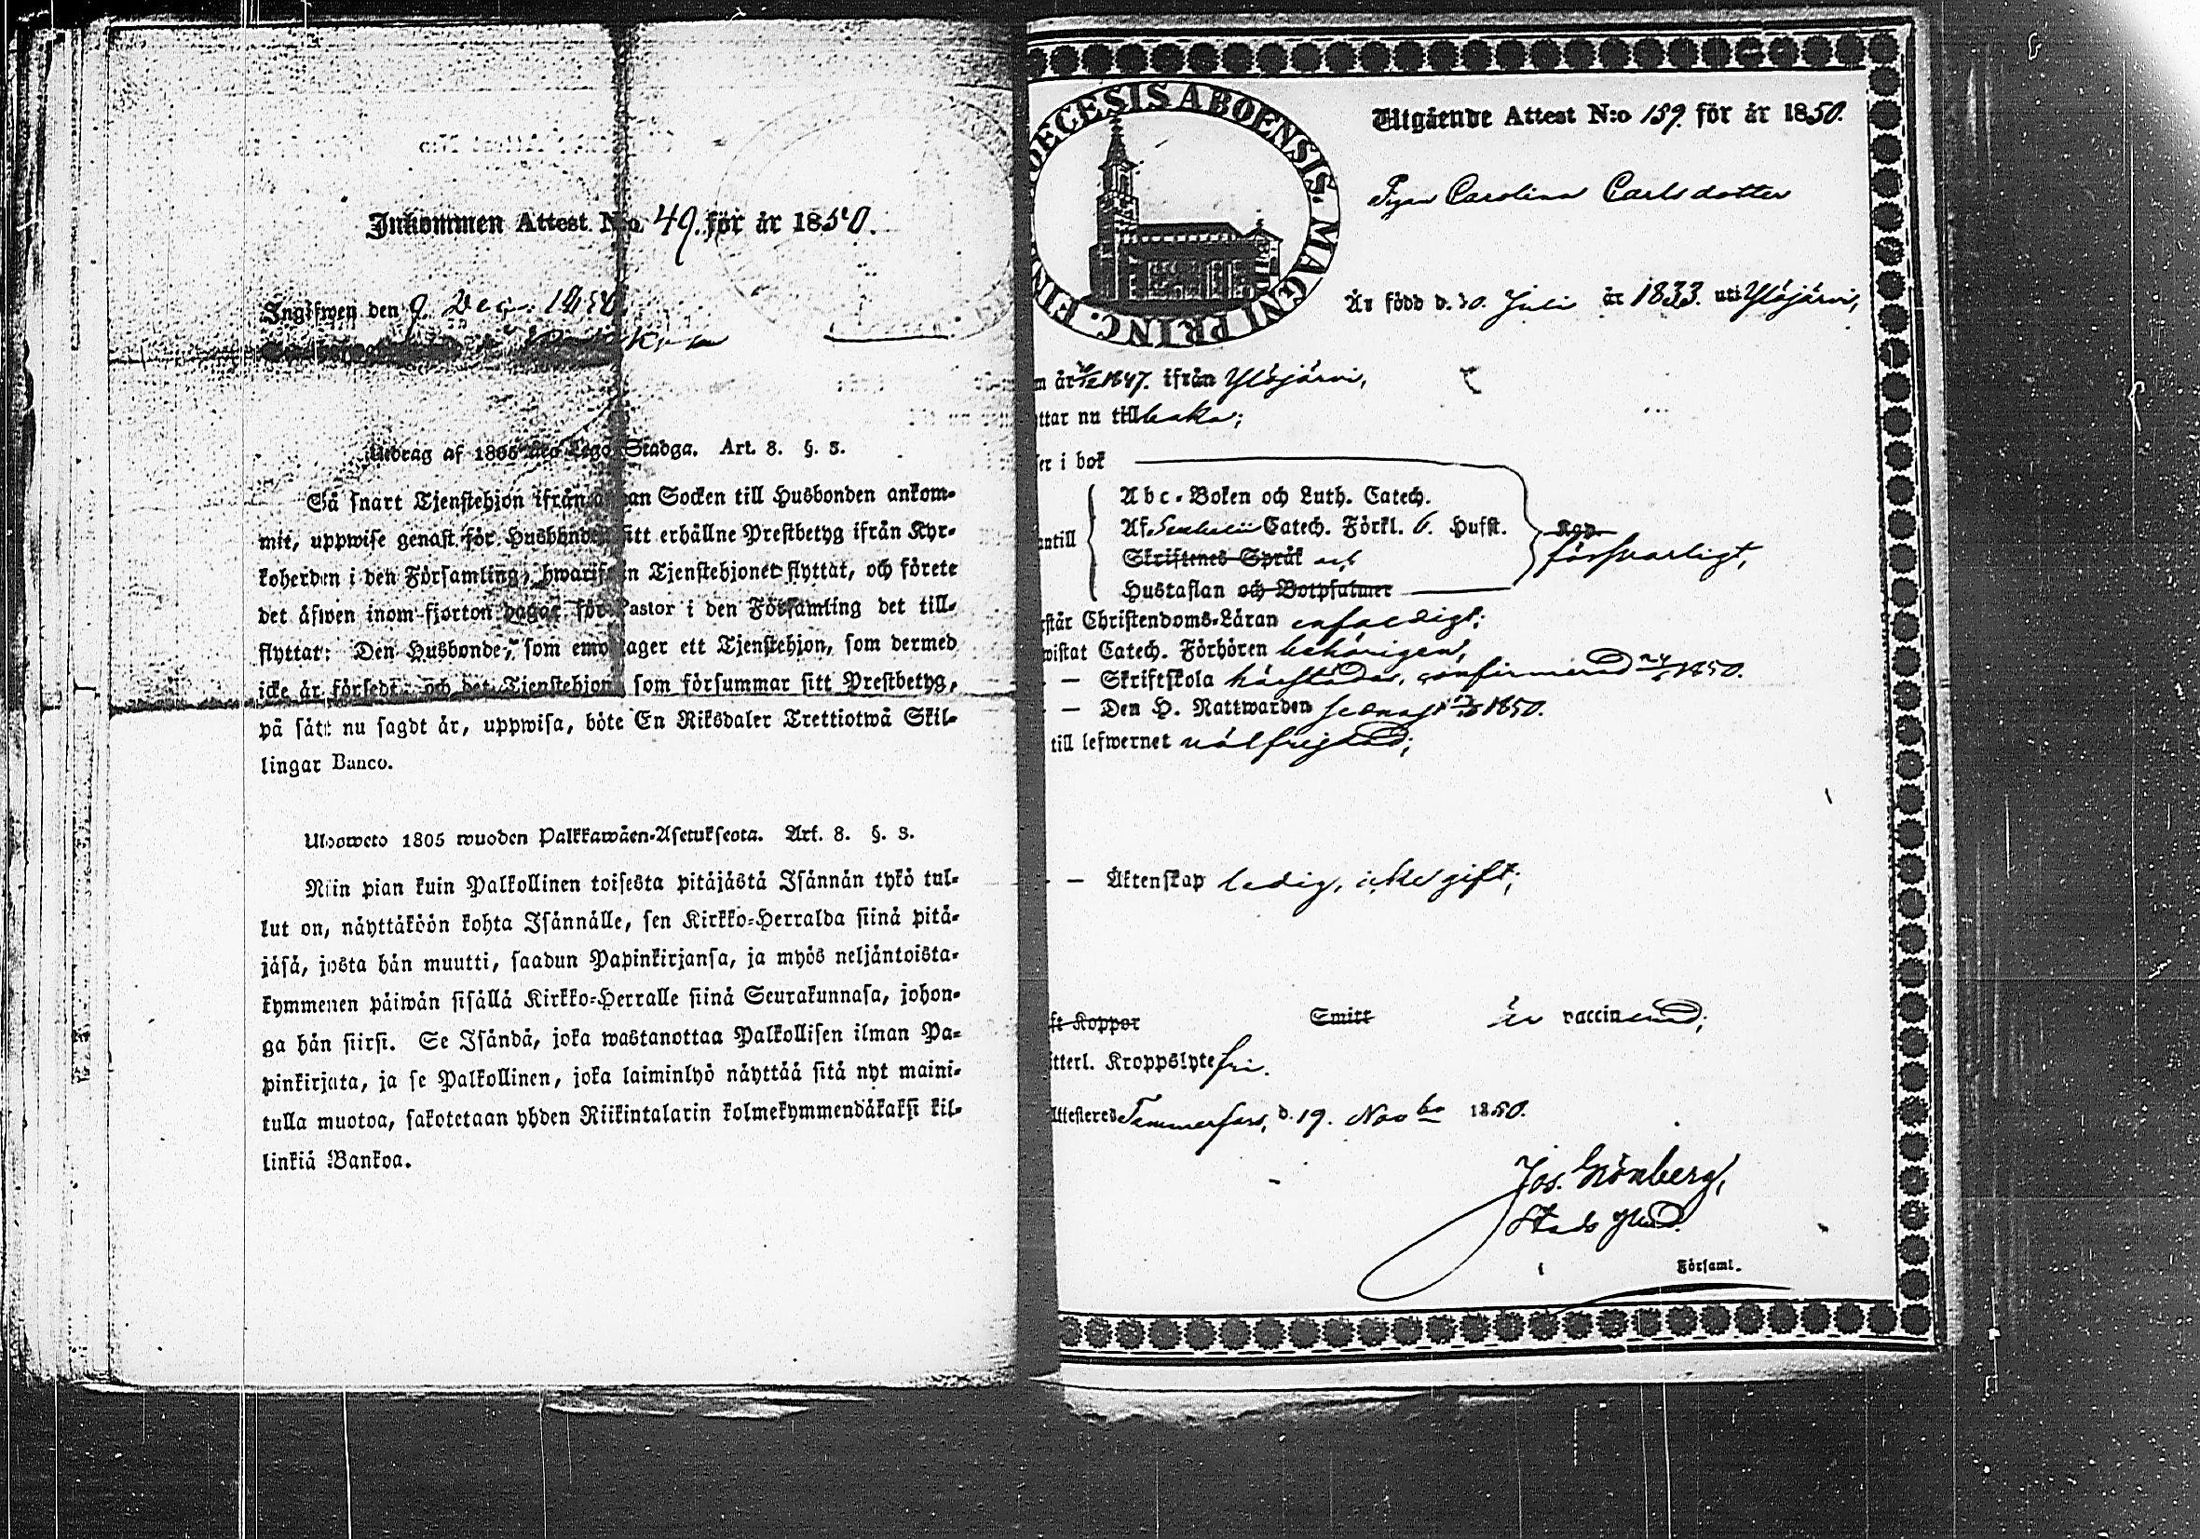 Inkommen Attest N:o 49. för år 1850.
Ingifwen den 9. Dec. 1850
Utdrag af 1805 års Lego-Stadga. Art. 8. §. 3.
Så snart Tjenstehjon ifrån annan Socken till Husbonden ankom-
mit, uppwise genast för Husbonden sitt erhållne Prestbetyg ifrån Kyr-
koherden i den Församling, hwarifrån Tjenstehjonet flyttat, och förete
det äfwen inom fjorton dagar för Pastor i den Församling det till-
flyttat: Den Husbonde, som emottager ett Tjenstehjon, som dermed
icke är försedt, och det Tjenstehjon, som försummar sitt Prestbetyg,
på sätt nu sagdt är, uppwisa, böte En Riksdaler Trettiotwå Skil-
lingar Banco.
Ulosweto 1805 wuoden Palkkawäen-Asetuksesta. Art. 8. §. 3.
Niin pian kuin Palkollinen toisesta pitäjästä Isännän tykö tul-
lut on, näyttäköön kohta Isännälle, sen Kirkko-Herralda siinä pitä-
jäsä, josta hän muutti, saadun Papinkirjansa, ja myös neljäntoista-
kymmenen päiwän sisällä Kirkko-Herralle siinä Seurakunnasa, johon-
ga hän siirsi. Se Isändä, joka wastanottaa Palkollisen ilman Pa-
pinkirjata, ja se Palkollinen, joka laiminlyö näyttää sitä nyt maini-
tulla muotoa, sakotetaan yhden Riikintalarin kolmekymmendäkaksi kil-
linkiä Bankoa.
DIOECESIS ABOENSIS. MAGNI PRINC. FIN
BILD.
Utgående Attest N:o 159. för år 1850.
Pigan Carolina Carlsdotter
Är född d. 30. Juli år 1833. uti Ylöjärvi,
m år 1847. ifrån Ylöjärvi,
ttar nu tillbaka;
ser i bok
Abc-Boken och Luth. Catech.
antill Af Catech. Förkl. 6. Hufst.
försvarligt,
Skriftenes Språk och
Hustaflan och Botpsalmer
står Christendoms-Läran enfaldigt;
wistat Catech. Förhören behörigen,
- — Skriftskola härstädes, confirmerad 1850.
- — Den H. Nattwarden sednast 1850.
till lefwernet välfrejdad;
- — Äktenskap ledig, icke gift;
ft Koppor Smitt är vaccinerad;
tterl. Kroppslyte fri.
Attesteras Tammerfors, d. 19. Novbr 1850.
Jos. Grönberg,
Församl.